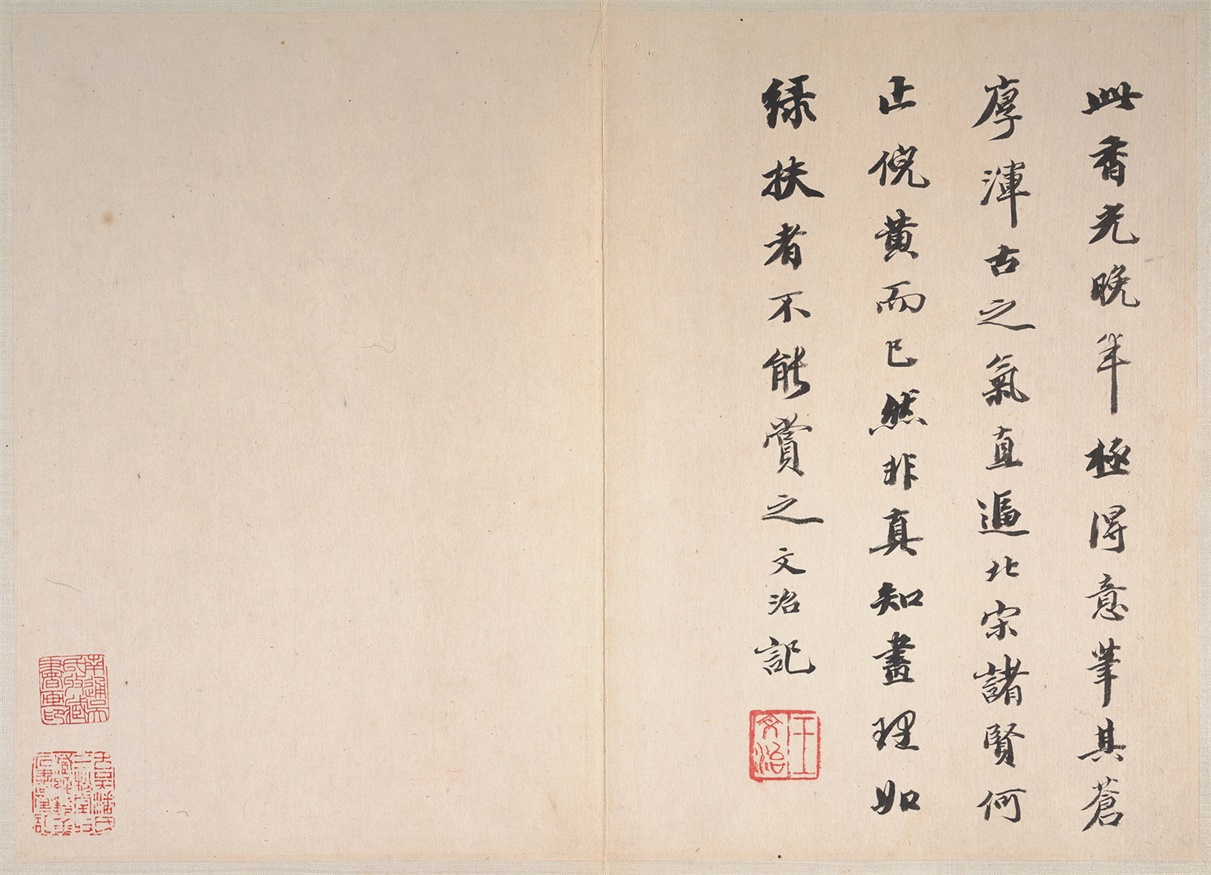 此香光晚年極得意筆其蒼
厚渾古之氣直逼北宋諸賢何
止倪黃而已然非真知畫理如
綠扶者不能賞之文治記
王文治
南通吳氏收藏書畫印